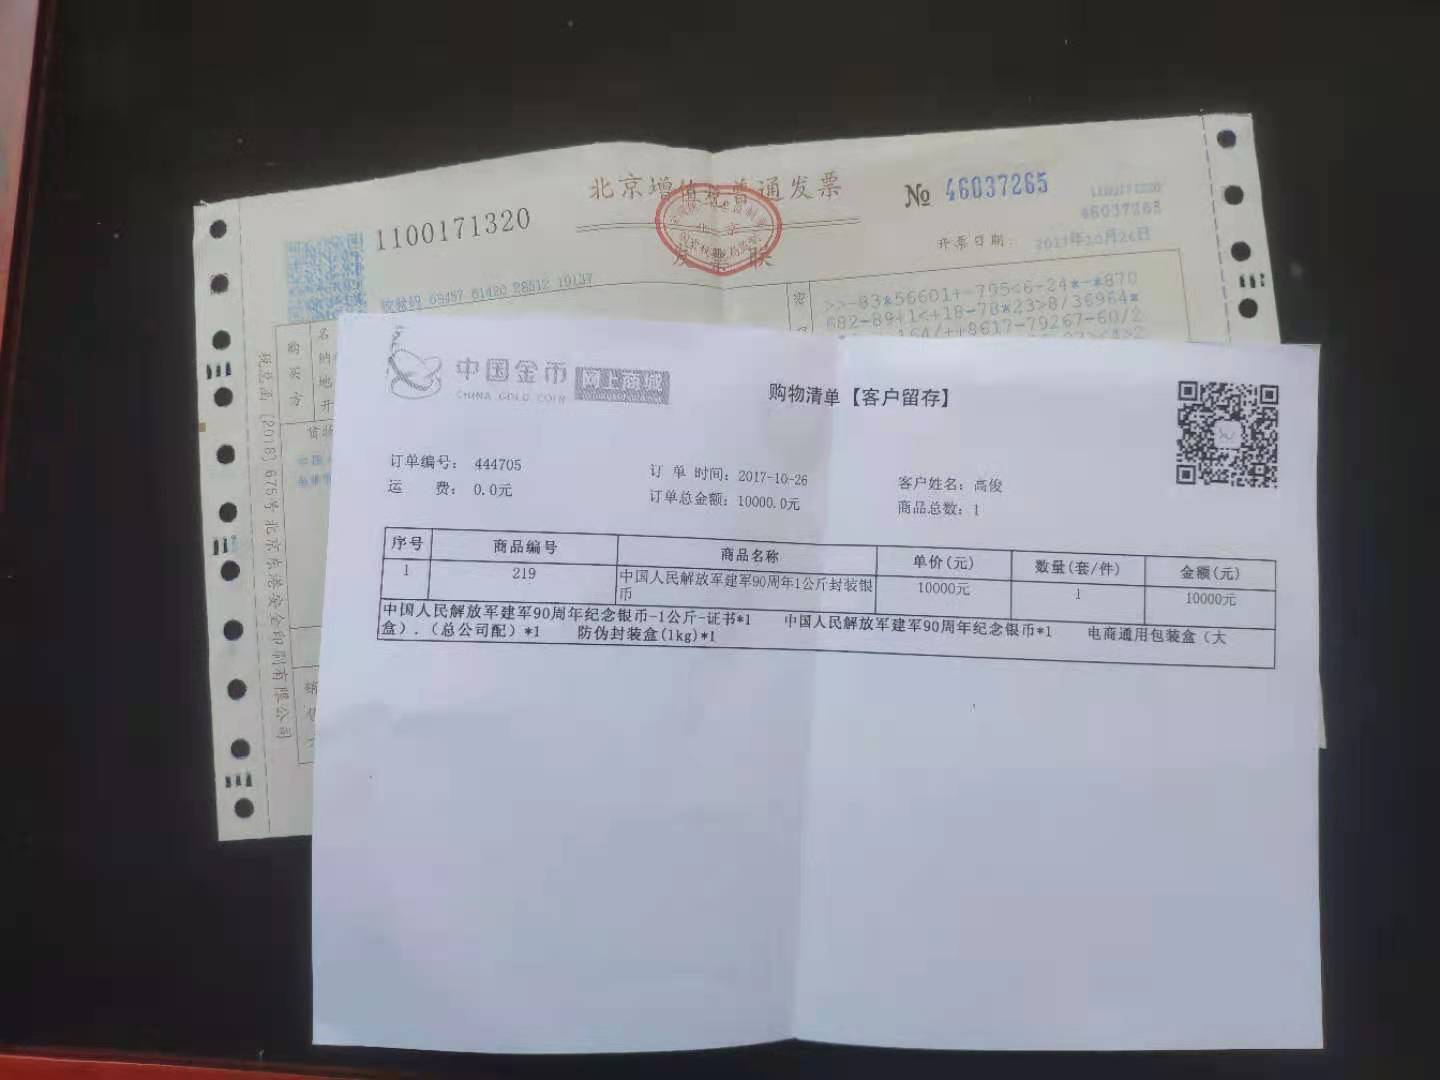 北京增值税普通发票
1100171320
№ 46037265
1100171320
46037265
开票日期: 2017年10月26日
北京
发票联
校验码 69457 61420 28512 19137
>>-83*56601+-795<6-24*-*870
682-89+1<+18-78*23>8/36964*
164/++8617-79267-60/2
密
购买方
名
纳
地
开
税总函〔2016〕675号北京东港安全印刷有限公司
中国金币 网上商城
CHINA GOLD COIN
购物清单【客户留存】
订单编号: 444705
订 单 时间: 2017-10-26
客户姓名: 高俊
运 费: 0.0元
订单总金额: 10000.0元
商品总数: 1
序号 商品编号 商品名称 单价(元) 数量(套/件) 金额(元)
1 219 中国人民解放军建军90周年1公斤封装银币 10000元 1 10000元
中国人民解放军建军90周年纪念银币-1公斤-证书*1 中国人民解放军建军90周年纪念银币*1 电商通用包装盒(大
盒).(总公司配)*1 防伪封装盒(1kg)*1